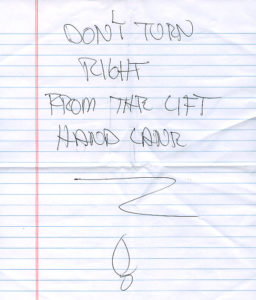 DON'T TURN
RIGHT
FROM THE LIFT
HAND LANE